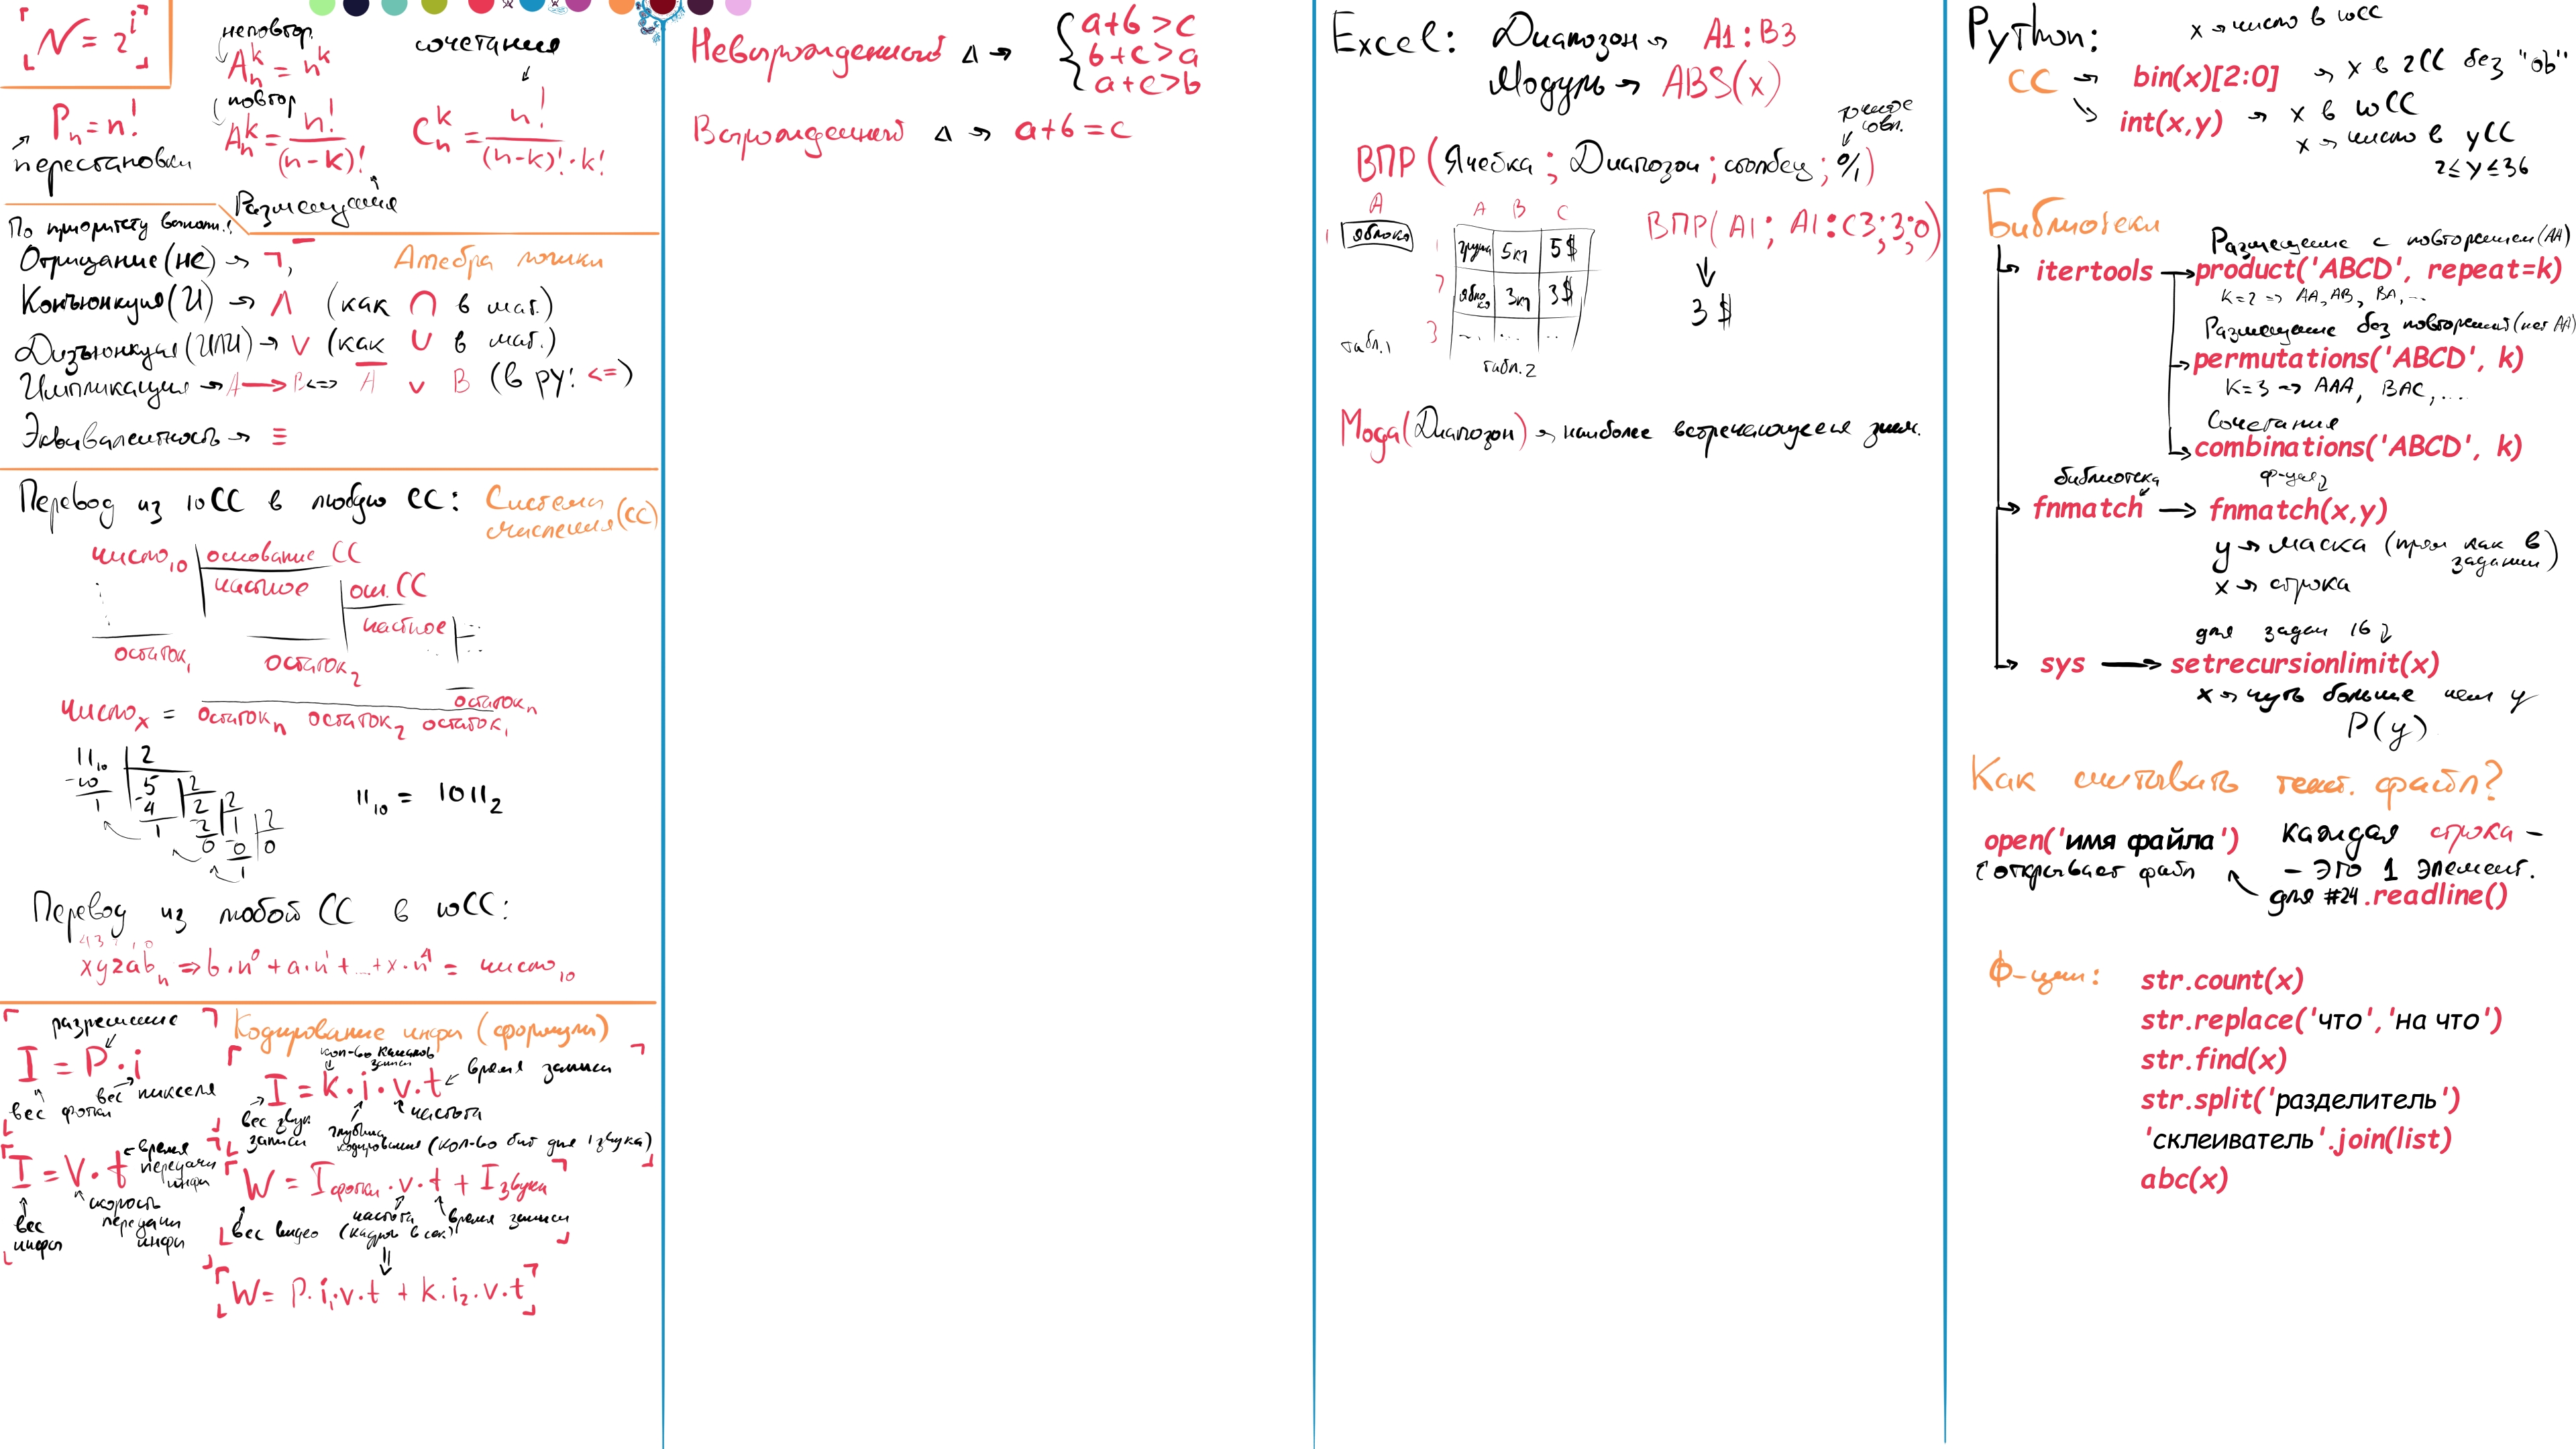 N = 2^i
неповтор.
A_n^k = n^k
повтор
A_n^k = n!/(n-k)!
Размещения
сочетания
C_n^k = n!/((n-k)!·k!)
P_n = n!
перестановки
По приоритету
Отрицание (не) → ¬, ‾
Алгебра логики
Конъюнкция (И) → ∧ (как ∩ в мат.)
Дизъюнкция (ИЛИ) → ∨ (как ∪ в мат.)
Импликация → A → B <=> A̅ ∨ B (в py: <=)
Эквивалентность → ≡
Перевод из 10СС в любую СС:
Система счисления (СС)
число_10 | основание СС
частное | осн. СС
частное
остаток_1 остаток_2
остаток_n
число_x = остаток_n остаток_2 остаток_1
11_10 | 2
-10 | 5 | 2
1 -4 | 2 | 2
1 -2 | 1 | 2
0 -0 | 0
1
11_10 = 1011_2
Перевод из любой СС в 10СС:
4 3 2 1 0
xyzab_n => b·n^0 + a·n^1 + ... + x·n^4 = число_10
Кодирование инфы (формулы)
разрешение
I = P·i
вес пикселя
вес фотки
кол-во каналов записи
I = k·i·v·t
время записи
вес звук. записи
частота
глубина кодирования (кол-во бит для 1 звука)
I = V·t
время передачи инфы
скорость передачи инфы
вес инфы
W = I фотки·v·t + I звука
частота (кадров в сек)
время записи
вес видео
W = P·i_1·v·t + k·i_2·v·t
Невырожденный Δ →
{a+b>c
b+c>a
a+c>b
Вырожденный Δ → a+b=c
Excel: Диапозон → A1:B3
Модуль → ABS(x)
точное совп.
ВПР (Ячейка; Диапозон; столбец; 0/1)
A
1 яблоко
табл.1
A B C
1 груша 5кг 5$
2 яблоко 3кг 3$
3 ... .. ..
табл.2
ВПР(A1; A1:C3;3;0)
3 $
Мода(Диапозон) → наиболее встречающееся знач.
Python:
x → число в 10СС
СС → bin(x)[2:0] → x в 2СС без "0b"
int(x,y) → x в 10СС
x → число в yСС
2≤y≤36
Библиотеки
Размещение с повторением (AA)
itertools → product('ABCD', repeat=k)
k=2 => AA, AB, BA, ...
Размещение без повторений (нет AA)
permutations('ABCD', k)
k=3 => AAA, BAC, ....
Сочетания
combinations('ABCD', k)
библиотека
ф-ция
fnmatch → fnmatch(x,y)
y → маска (прям как в задании)
x → строка
для задач 16
sys → setrecursionlimit(x)
x → чуть больше чем y
P(y)
Как считывать текст. файл?
open('имя файла')
открывает файл
каждая строка -
- это 1 элемент.
для #24 .readline()
Ф-ции:
str.count(x)
str.replace('что','на что')
str.find(x)
str.split('разделитель')
'склеиватель'.join(list)
abc(x)